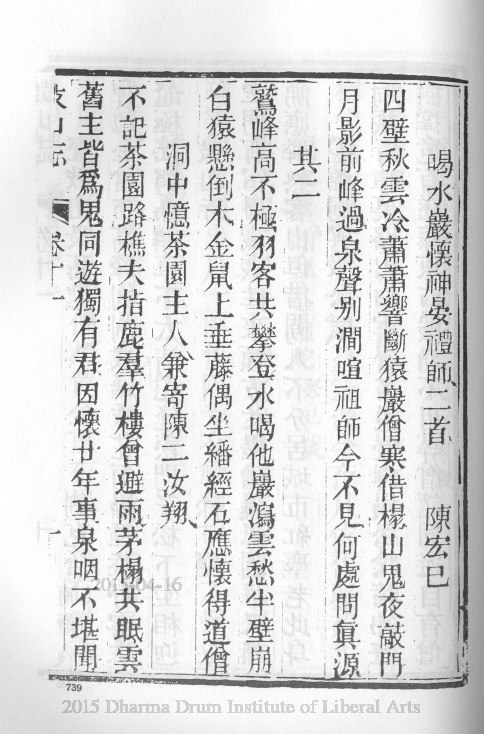 喝水巖懷神晏禪師二首　陳宏已
四壁秋雲冷蕭蕭響斷猿巖僧寒借榻山鬼夜敲門
月影前峰過泉聲別澗喧祖師今不見何處問真源
其二
鷲峰高不極羽客共攀登水喝他巖瀉雲愁半壁崩
白猿懸倒木金鼠上垂藤偶坐繙經石應懷得道僧
洞中憶茶園主人兼寄陳二汝翔
不記茶園路樵夫指鹿羣竹樓曾避雨茅榻共眠雲
舊主皆爲鬼同遊獨有君因懷廿年事泉咽不堪聞
山志　卷十一
739
2015-04-16
2015 Dharma Drum Institute of Liberal Arts